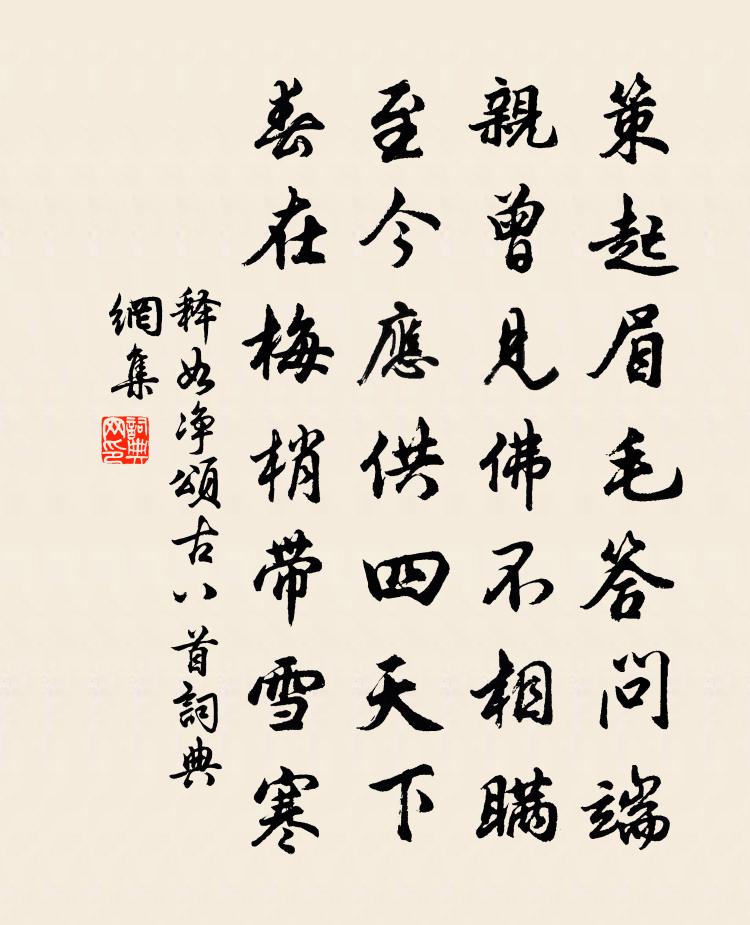 策起眉毛答问端
親曾見佛不相瞞
至今應供四天下
春在梅梢带雪寒
释如净頌古八首詞典
網集
詞典
网印